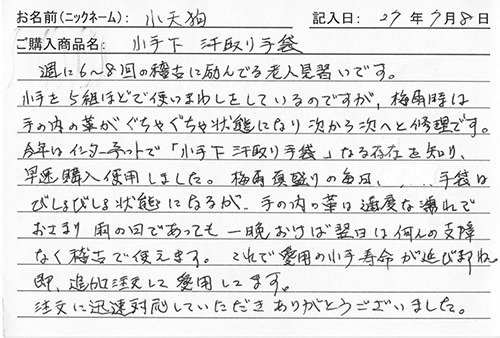 お名前(ニックネーム): 小天狗 記入日: 27年7月8日
ご購入商品名: 小手下 汗取り手袋
週に6〜8回の稽古に励んでる老人見習いです。
小手を5組ほどで使いまわしをしているのですが、梅雨時は
手の内の革がぐちゃぐちゃ状態になり次から次へと修理です。
今年はインターネットで「小手下 汗取り手袋」なる存在を知り、
早速購入使用しました。梅雨真盛りの毎日、....手袋は
びしょびしょ状態になるが、手の内の革は適度な濡れで
おさまり雨の日であっても一晩おけば翌日は何んの支障
なく稽古で使えます。これで愛用の小手寿命が延びますね。
即、追加注文して愛用してます。
注文に迅速対応していただきありがとうございました。